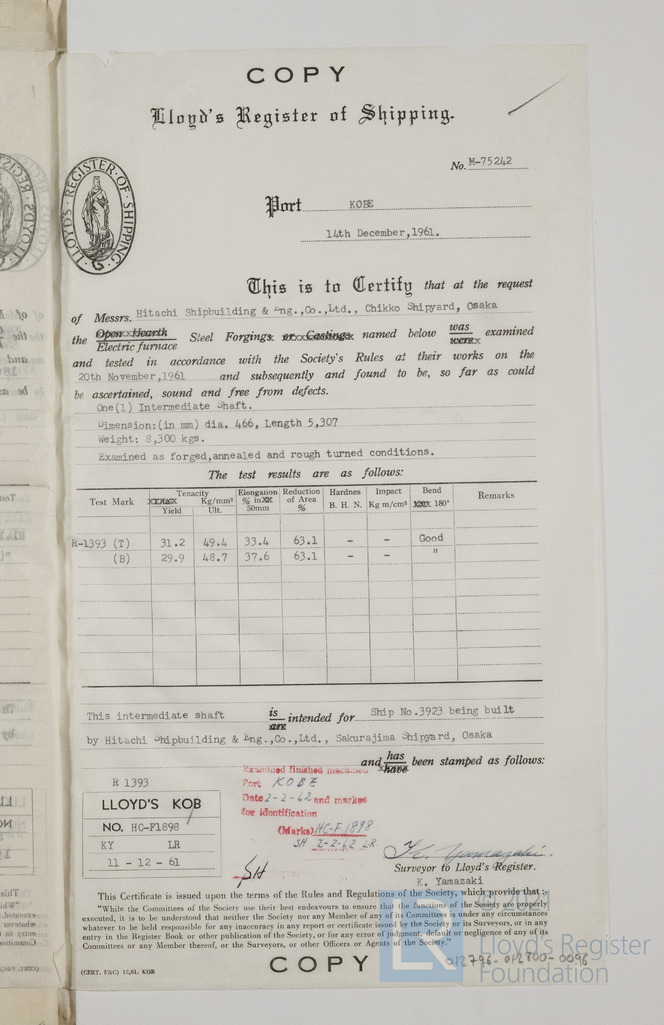 COPY
Lloyd's Register of Shipping.
LLOYD'S REGISTER OF SHIPPING
No. M-75242
Port KOBE
14th December,1961.
This is to Certify that at the request
of Messrs. Hitachi Shipbuilding & Eng.,Co.,Ltd., Chikko Shipyard, Osaka
the Open Hearth Steel Forgings or Castings named below was examined
Electric furnace were
and tested in accordance with the Society's Rules at their works on the
20th November,1961 and subsequently and found to be, so far as could
be ascertained, sound and free from defects.
One(1) Intermediate Shaft.
Dimension:(in mm) dia. 466, Length 5,307
Weight: 8,300 kgs.
Examined as forged,annealed and rough turned conditions.
The test results are as follows:
Test Mark Tenacity Kg/mm² Yield Ult. Elongation % in 50mm Reduction of Area % Hardnes B. H. N. Impact Kg m/cm² Bend 180° Remarks
R-1393 (T) 31.2 49.4 33.4 63.1 - - Good
(B) 29.9 48.7 37.6 63.1 - - "
This intermediate shaft is are intended for Ship No.3923 being built
by Hitachi Shipbuilding & Eng.,Co.,Ltd., Sakurajima Shipyard, Osaka
and has have been stamped as follows:
R 1393
LLOYD'S KOB
NO. HC-F1898
KY LR
11 - 12 - 61
Examined finished machined
Port KOBE
Date 2-2-62 and marked
for identification
(Marks) HC-F 1898
SH 2-2-62 LR
SH
K. Yamazaki.
Surveyor to Lloyd's Register.
K. Yamazaki
This Certificate is issued upon the terms of the Rules and Regulations of the Society, which provide that :-
"While the Committees of the Society use their best endeavours to ensure that the functions of the Society are properly
executed, it is to be understood that neither the Society nor any Member of any of its Committees under any circumstances
whatever to be held responsible for any inaccuracy in any report or certificate issued by the Society or its Surveyors, or in any
entry in the Register Book or other publication of the Society, or for any error of judgment, default or negligence of any of its
Committees or any Member thereof, or the Surveyors, or other Officers or Agents of the Society."
COPY
(CERT. F&C) 12,61. KOB
012796-012800-0096
LR
Lloyd's Register
Foundation